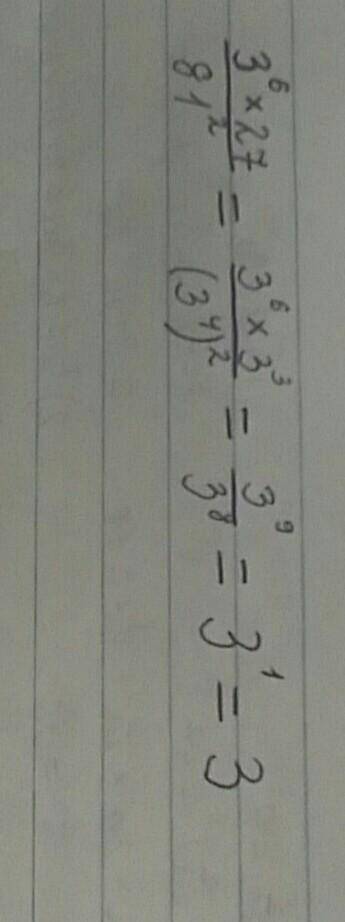 3⁶ × 27 / 81² = 3⁶ × 3³ / (3⁴)² = 3⁹ / 3⁸ = 3¹ = 3